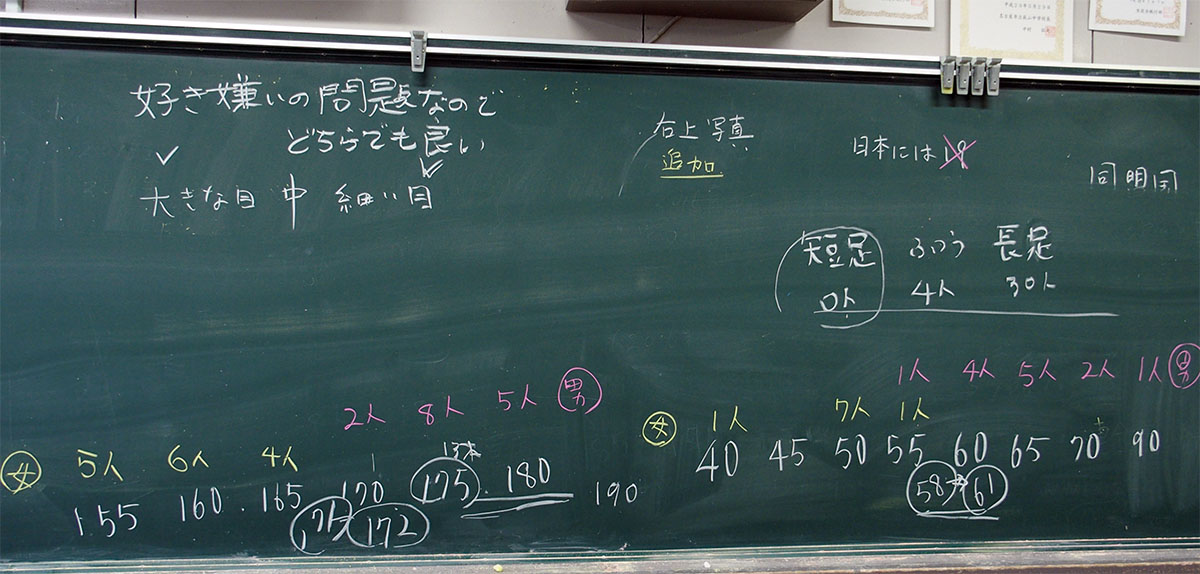 好き嫌いの問題なので
どちらでも良い
✓ ✓
大きな目 中 細い目
右上写真
追加
日本には19
同盟国
短足 ふつう 長足
0人 4人 30人
2人 8人 5人 男
女 5人 6人 4人
155 160 165 170 175 180 190
171 172
1人 4人 5人 2人 1人 男
女 1人 7人 1人
40 45 50 55 60 65 70 90
58 61